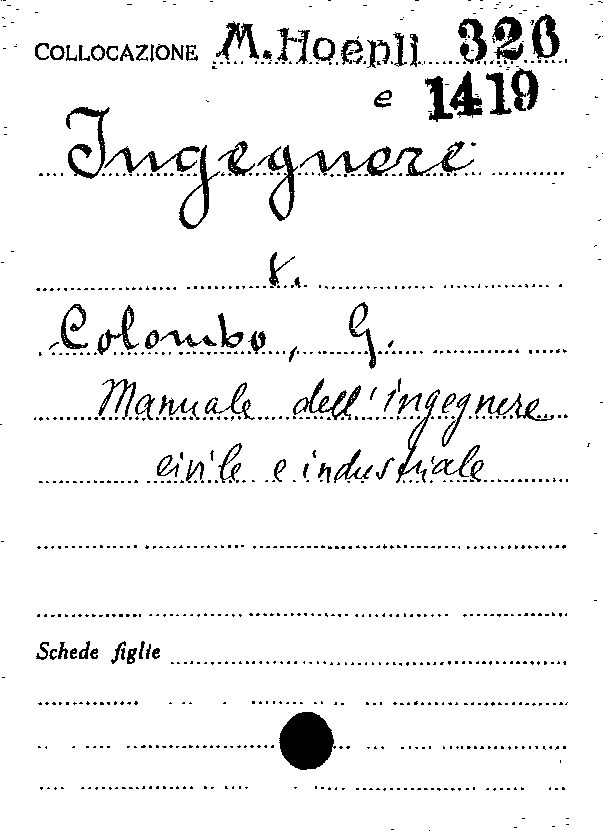 COLLOCAZIONE M. Hoepli 326
e 1419
Ingegnere
v.
Colombo, G.
Manuale dell'ingegnere
civile e industriale
Schede figlie